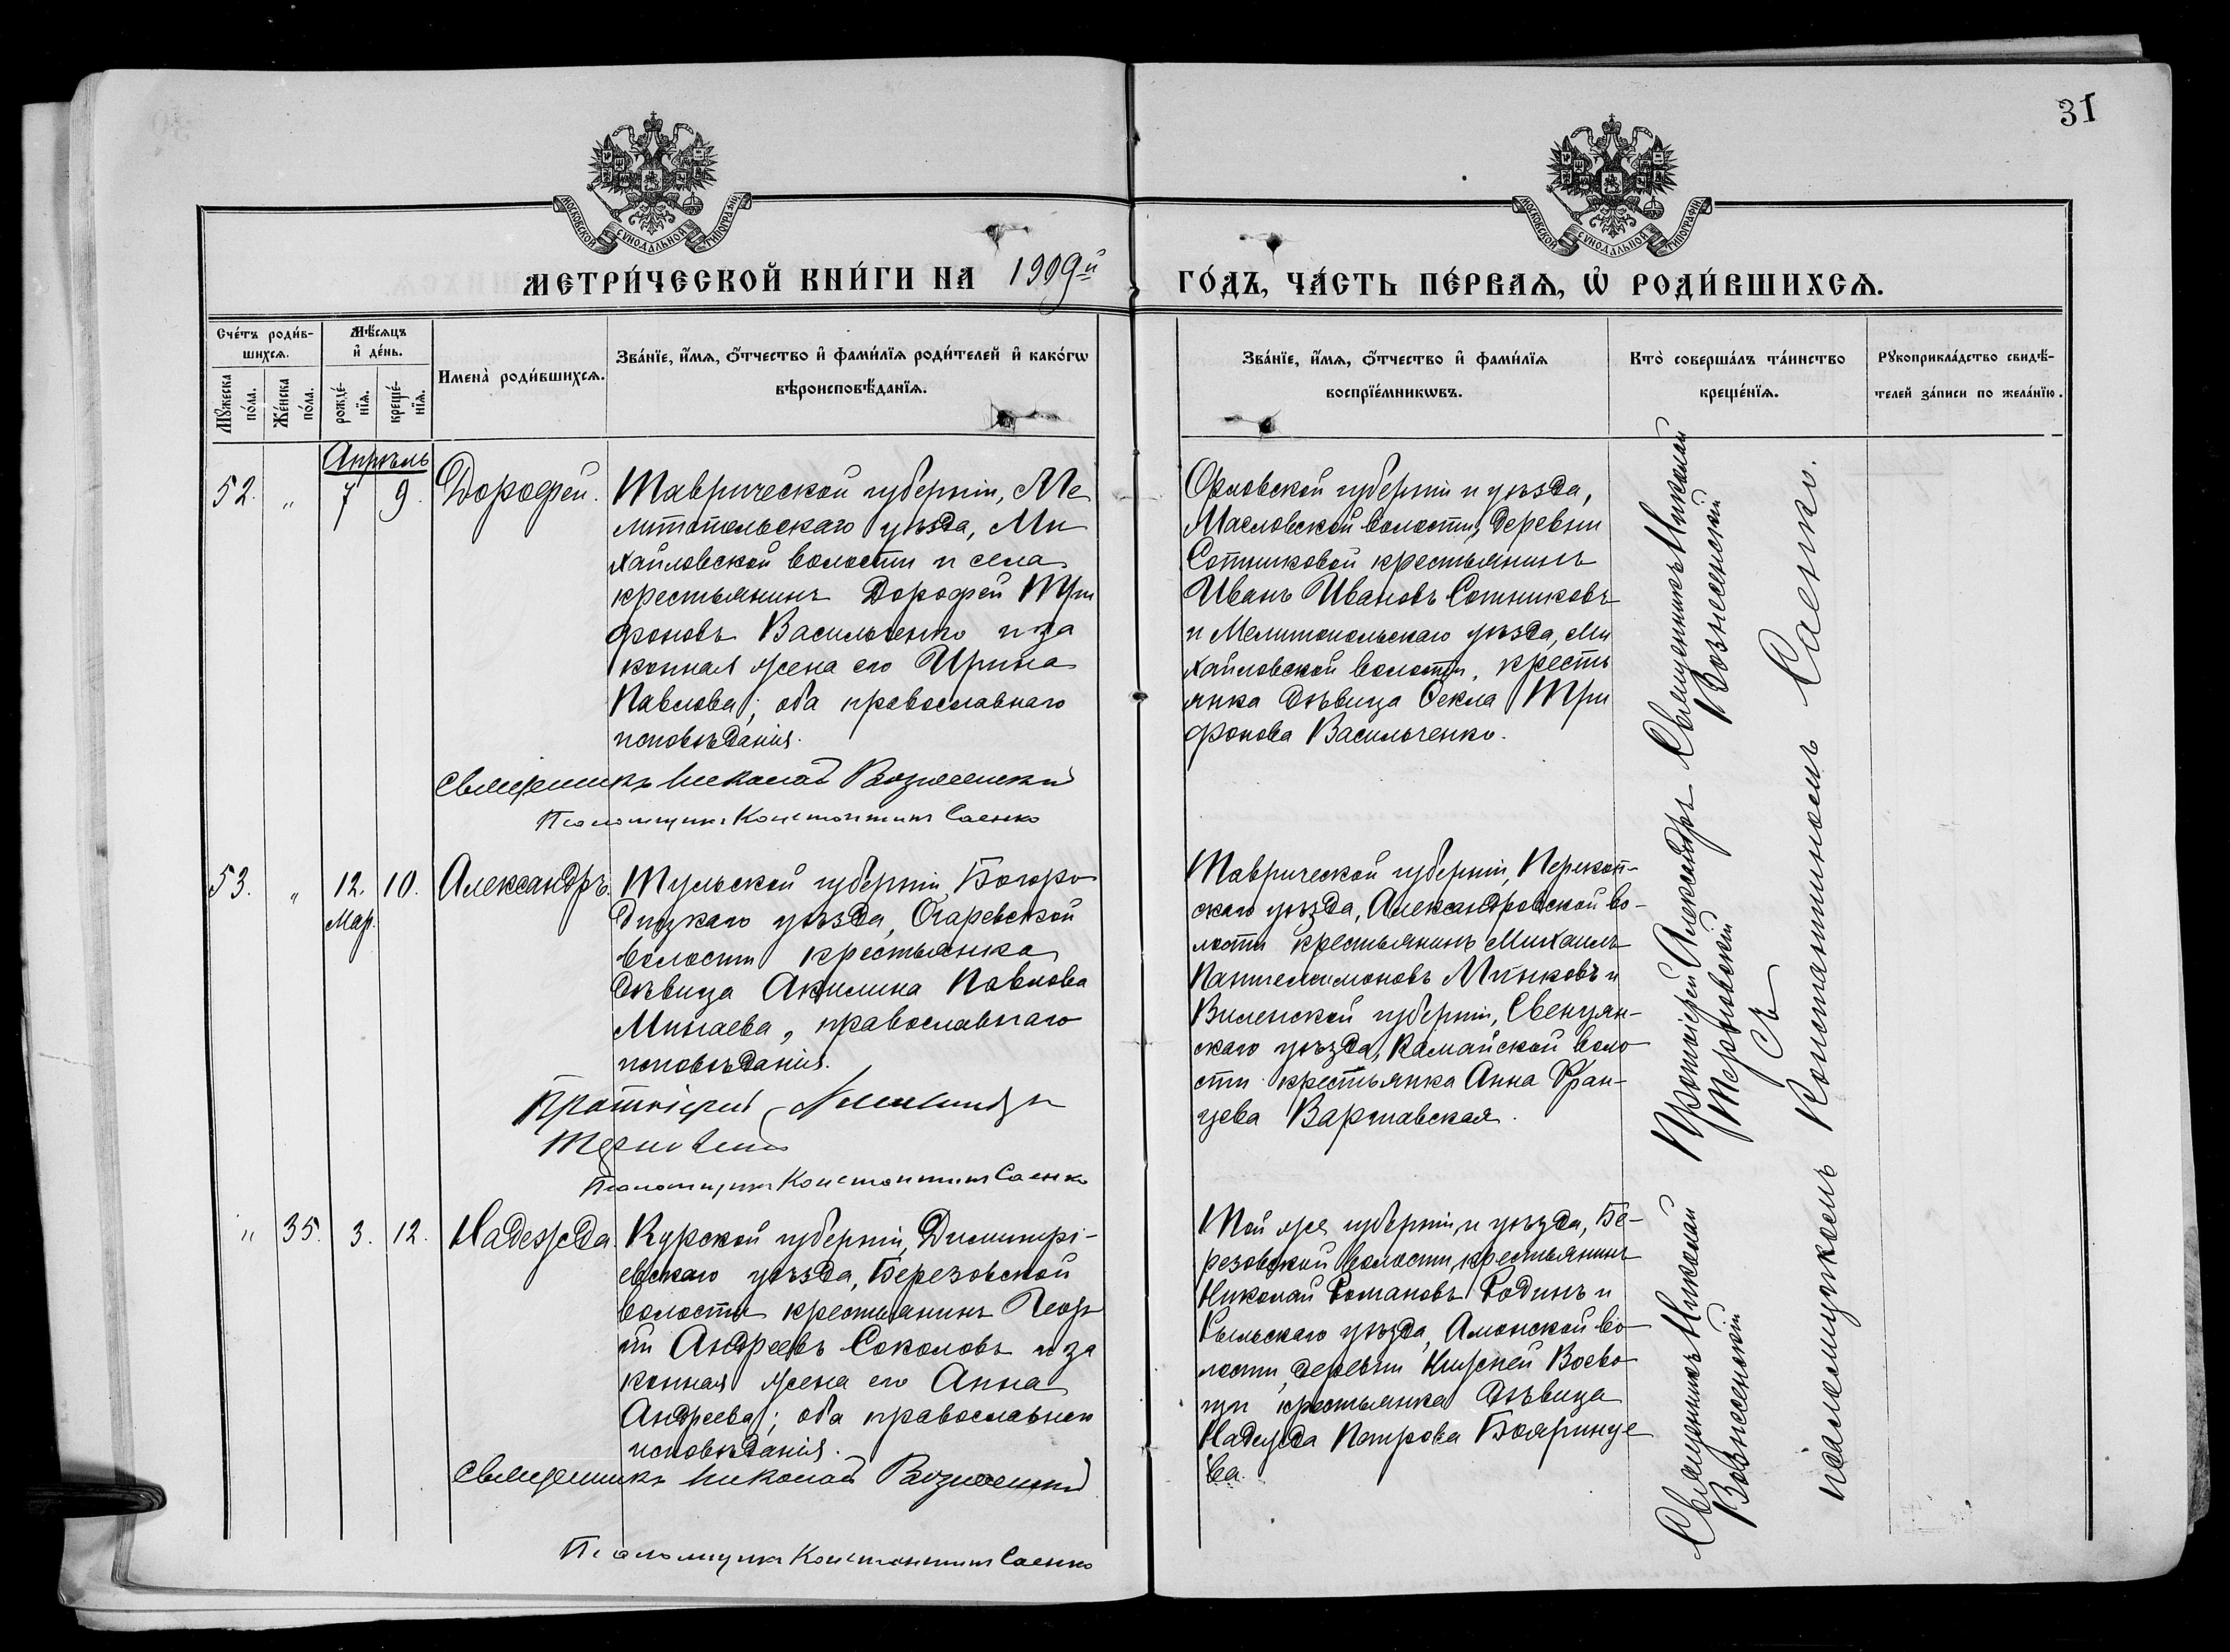 31
МОСКОВСКОЙ СУНОДАЛЬНОЙ ТИПОГРАФІИ
МОСКОВСКОЙ СУНОДАЛЬНОЙ ТИПОГРАФІИ
МЕТРИ́ЧЕСКОЙ КНИ́ГИ НА 1909й ГО́ДЪ, ЧА́СТЬ ПЕ́РВАѦ, Ѡ҆ РОДИ́ВШИХСѦ.
Сче́тъ роди́в-
шихсѧ.
Мꙋ́жеска по́ла.
Же́нска по́ла.
Мѣ́сѧцъ
и҆ де́нь.
рожде́-
нїѧ.
креще́-
нїѧ.
Имена̀ роди́вшихсѧ.
Зва́нїе, и҆́мѧ, ѻ҆́тчество и҆ фами́лїѧ роди́телей и҆ како́гѡ
вѣроисповѣ́данїѧ.
Зва́нїе, и҆́мѧ, ѻ҆́тчество и҆ фами́лїѧ
воспрїе́мникѡвъ.
Кто̀ соверша́лъ та́инство
креще́нїѧ.
Рꙋкоприкла́дство свидѣ́-
телей за́писи по жела́нїю.
Апрѣль
52. „ 7 9. Дорофей.
Таврической губерніи, Ме
литопольскаго уѣзда, Ми
хайловской волости и села
крестьянинъ Дорофей Три
фоновъ Васильченко и за
конная жена его Ирина
Павлова; оба православнаго
исповѣданія.
Священникъ Николай Вознесенскій
Псаломщикъ Константинъ Саенко
Орловской губерніи и уѣзда,
Масловской волости, деревни
Сотниковой крестьянинъ
Иванъ Ивановъ Сотниковъ
и Мелитопольскаго уѣзда, Ми
хайловской волости, кресть
янка дѣвица Ѳекла Три
фонова Васильченко.
Священникъ Николай
Вознесенскій
53. „ 12. 10. Александръ.
Мар.
Тульской губерніи, Богоро
дицкаго уѣзда, Огаревской
волости крестьянка
дѣвица Акилина Павлова
Минаева, православнаго
исповѣданія.
Протоіерей Александръ
Терновскій
Псаломщикъ Константинъ Саенко
Таврической губерніи, Перекоп-
скаго уѣзда, Александровской во-
лости крестьянинъ Михаилъ
Пантелеимоновъ Минковъ и
Виленской губерніи, Свенцян-
скаго уѣзда, Камайской воло
сти крестьянка Анна Фран-
цева Варшавская.
Протоіерей Александръ
Терновскій
„ 35. 3. 12. Надежда
Курской губерніи, Димитрі-
евскаго уѣзда, Березовской
волости крестьянинъ Геор
гій Андреевъ Соколовъ и за
конная жена его Анна
Андреева; оба православнаго
исповѣданія.
Священникъ Николай Вознесенскій
Псаломщикъ Константинъ Саенко
Той же губерніи и уѣзда, Бе-
резовской волости, крестьянинъ
Николай Романовъ Родинъ и
Рыльскаго уѣзда, Амонской во-
лости, деревни Нижней
крестьянка дѣвица
Надежда Петрова Бояринце
ва.
Священникъ Николай
Вознесенскій
Съ
псаломщикомъ Константиномъ Саенко.